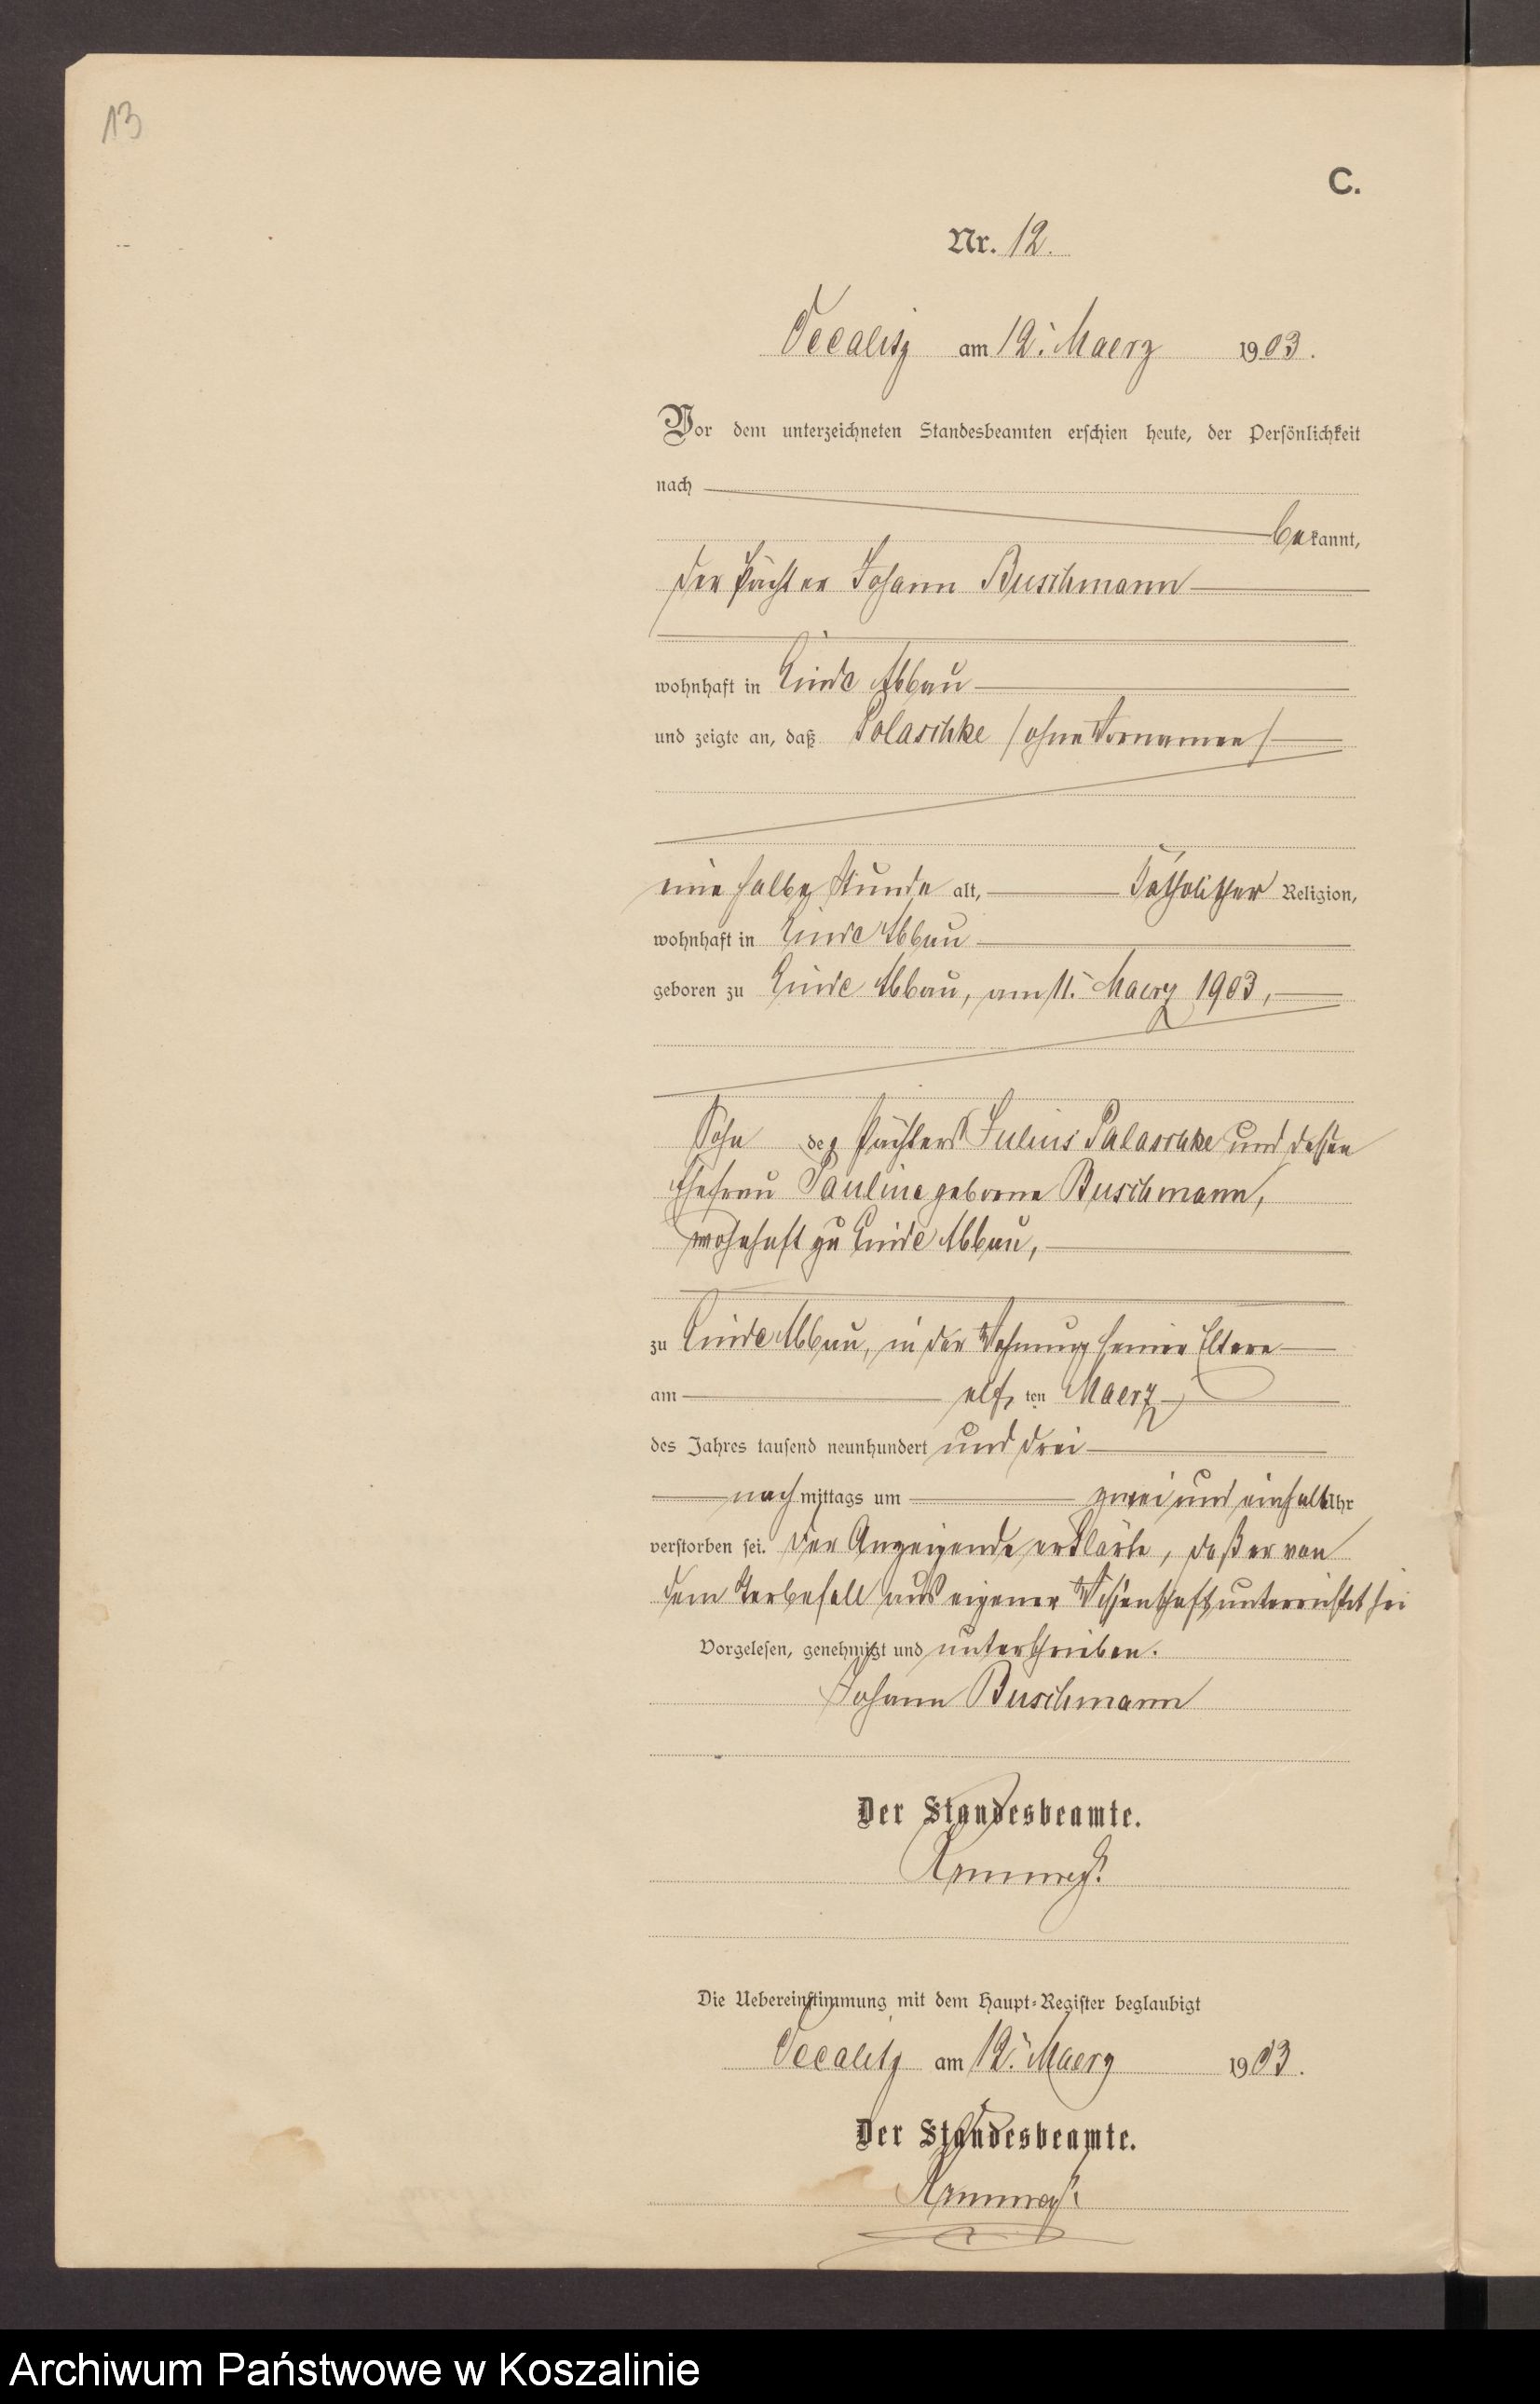 13
C.
Nr. 12.
am 12. Maerz 1903.
Vor dem unterzeichneten Standesbeamten erschien heute, der Persönlichkeit
nach
bekannt,
der Pächter Johann Buschmann
wohnhaft in Linde Abbau
und zeigte an, daß Polaschke /ohne Vornamen/
eine halbe Stunde alt, katholischer Religion,
wohnhaft in Linde Abbau
geboren zu Linde Abbau, am 11. Maerz 1903,
Sohn des Pächters Julius Palaschke und dessen
Ehefrau Pauline geborne Buschmann,
wohnhaft zu Linde Abbau,
zu Linde Abbau, in der Wohnung seiner Eltern
am elf ten Maerz
des Jahres tausend neunhundert und drei
nach mittags um zwei und einhalb Uhr
verstorben sei. Der Anzeigende erklärte, daß er von
dem Sterbefall aus eigener Wissenschaft unterrichtet sei
Vorgelesen, genehmigt und unterschrieben.
Johann Buschmann
Der Standesbeamte.
Die Uebereinstimmung mit dem Haupt-Register beglaubigt
am 12. Maerz 1903.
Der Standesbeamte.
Archiwum Państwowe w Koszalinie